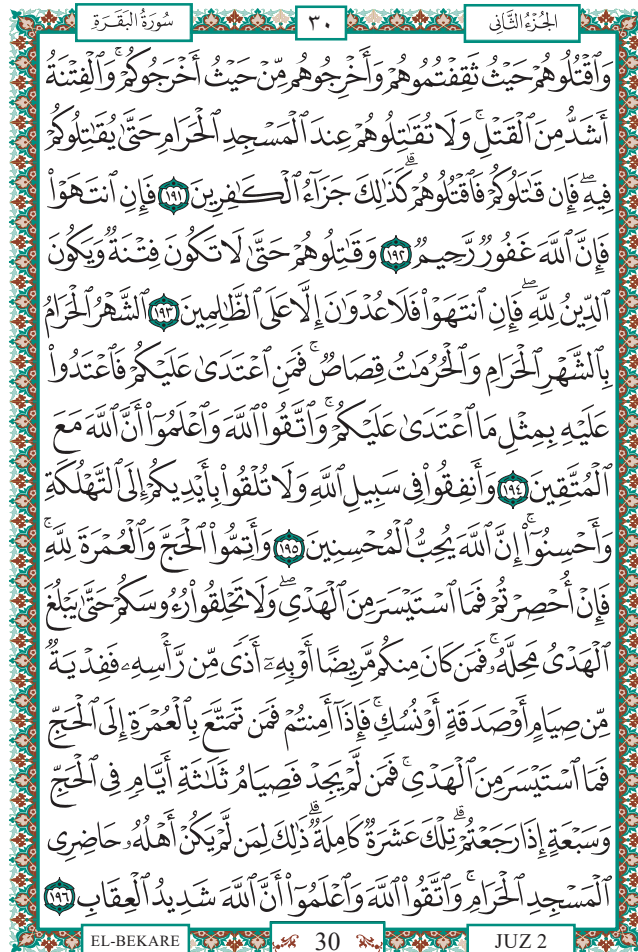 الجُزْءُ الثَّانِى ٣٠ سُورَةُ الْبَقَرَةِ
وَٱقْتُلُوهُمْ حَيْثُ ثَقِفْتُمُوهُمْ وَأَخْرِجُوهُم مِّنْ حَيْثُ أَخْرَجُوكُمْ ۚ وَٱلْفِتْنَةُ
أَشَدُّ مِنَ ٱلْقَتْلِ ۚ وَلَا تُقَٰتِلُوهُمْ عِندَ ٱلْمَسْجِدِ ٱلْحَرَامِ حَتَّىٰ يُقَٰتِلُوكُمْ
فِيهِ ۖ فَإِن قَٰتَلُوكُمْ فَٱقْتُلُوهُمْ ۗ كَذَٰلِكَ جَزَآءُ ٱلْكَٰفِرِينَ ١٩١ فَإِنِ ٱنتَهَوْا۟
فَإِنَّ ٱللَّهَ غَفُورٌ رَّحِيمٌ ١٩٢ وَقَٰتِلُوهُمْ حَتَّىٰ لَا تَكُونَ فِتْنَةٌ وَيَكُونَ
ٱلدِّينُ لِلَّهِ ۖ فَإِنِ ٱنتَهَوْا۟ فَلَا عُدْوَٰنَ إِلَّا عَلَى ٱلظَّٰلِمِينَ ١٩٣ ٱلشَّهْرُ ٱلْحَرَامُ
بِٱلشَّهْرِ ٱلْحَرَامِ وَٱلْحُرُمَٰتُ قِصَاصٌ ۚ فَمَنِ ٱعْتَدَىٰ عَلَيْكُمْ فَٱعْتَدُوا۟
عَلَيْهِ بِمِثْلِ مَا ٱعْتَدَىٰ عَلَيْكُمْ ۚ وَٱتَّقُوا۟ ٱللَّهَ وَٱعْلَمُوٓا۟ أَنَّ ٱللَّهَ مَعَ
ٱلْمُتَّقِينَ ١٩٤ وَأَنفِقُوا۟ فِى سَبِيلِ ٱللَّهِ وَلَا تُلْقُوا۟ بِأَيْدِيكُمْ إِلَى ٱلتَّهْلُكَةِ ۛ
وَأَحْسِنُوٓا۟ ۛ إِنَّ ٱللَّهَ يُحِبُّ ٱلْمُحْسِنِينَ ١٩٥ وَأَتِمُّوا۟ ٱلْحَجَّ وَٱلْعُمْرَةَ لِلَّهِ ۚ
فَإِنْ أُحْصِرْتُمْ فَمَا ٱسْتَيْسَرَ مِنَ ٱلْهَدْىِ ۖ وَلَا تَحْلِقُوا۟ رُءُوسَكُمْ حَتَّىٰ يَبْلُغَ
ٱلْهَدْىُ مَحِلَّهُۥ ۚ فَمَن كَانَ مِنكُم مَّرِيضًا أَوْ بِهِۦٓ أَذًى مِّن رَّأْسِهِۦ فَفِدْيَةٌ
مِّن صِيَامٍ أَوْ صَدَقَةٍ أَوْ نُسُكٍ ۚ فَإِذَآ أَمِنتُمْ فَمَن تَمَتَّعَ بِٱلْعُمْرَةِ إِلَى ٱلْحَجِّ
فَمَا ٱسْتَيْسَرَ مِنَ ٱلْهَدْىِ ۚ فَمَن لَّمْ يَجِدْ فَصِيَامُ ثَلَٰثَةِ أَيَّامٍ فِى ٱلْحَجِّ
وَسَبْعَةٍ إِذَا رَجَعْتُمْ ۗ تِلْكَ عَشَرَةٌ كَامِلَةٌ ۗ ذَٰلِكَ لِمَن لَّمْ يَكُنْ أَهْلُهُۥ حَاضِرِى
ٱلْمَسْجِدِ ٱلْحَرَامِ ۚ وَٱتَّقُوا۟ ٱللَّهَ وَٱعْلَمُوٓا۟ أَنَّ ٱللَّهَ شَدِيدُ ٱلْعِقَابِ ١٩٦
EL-BEKARE 30 JUZ 2